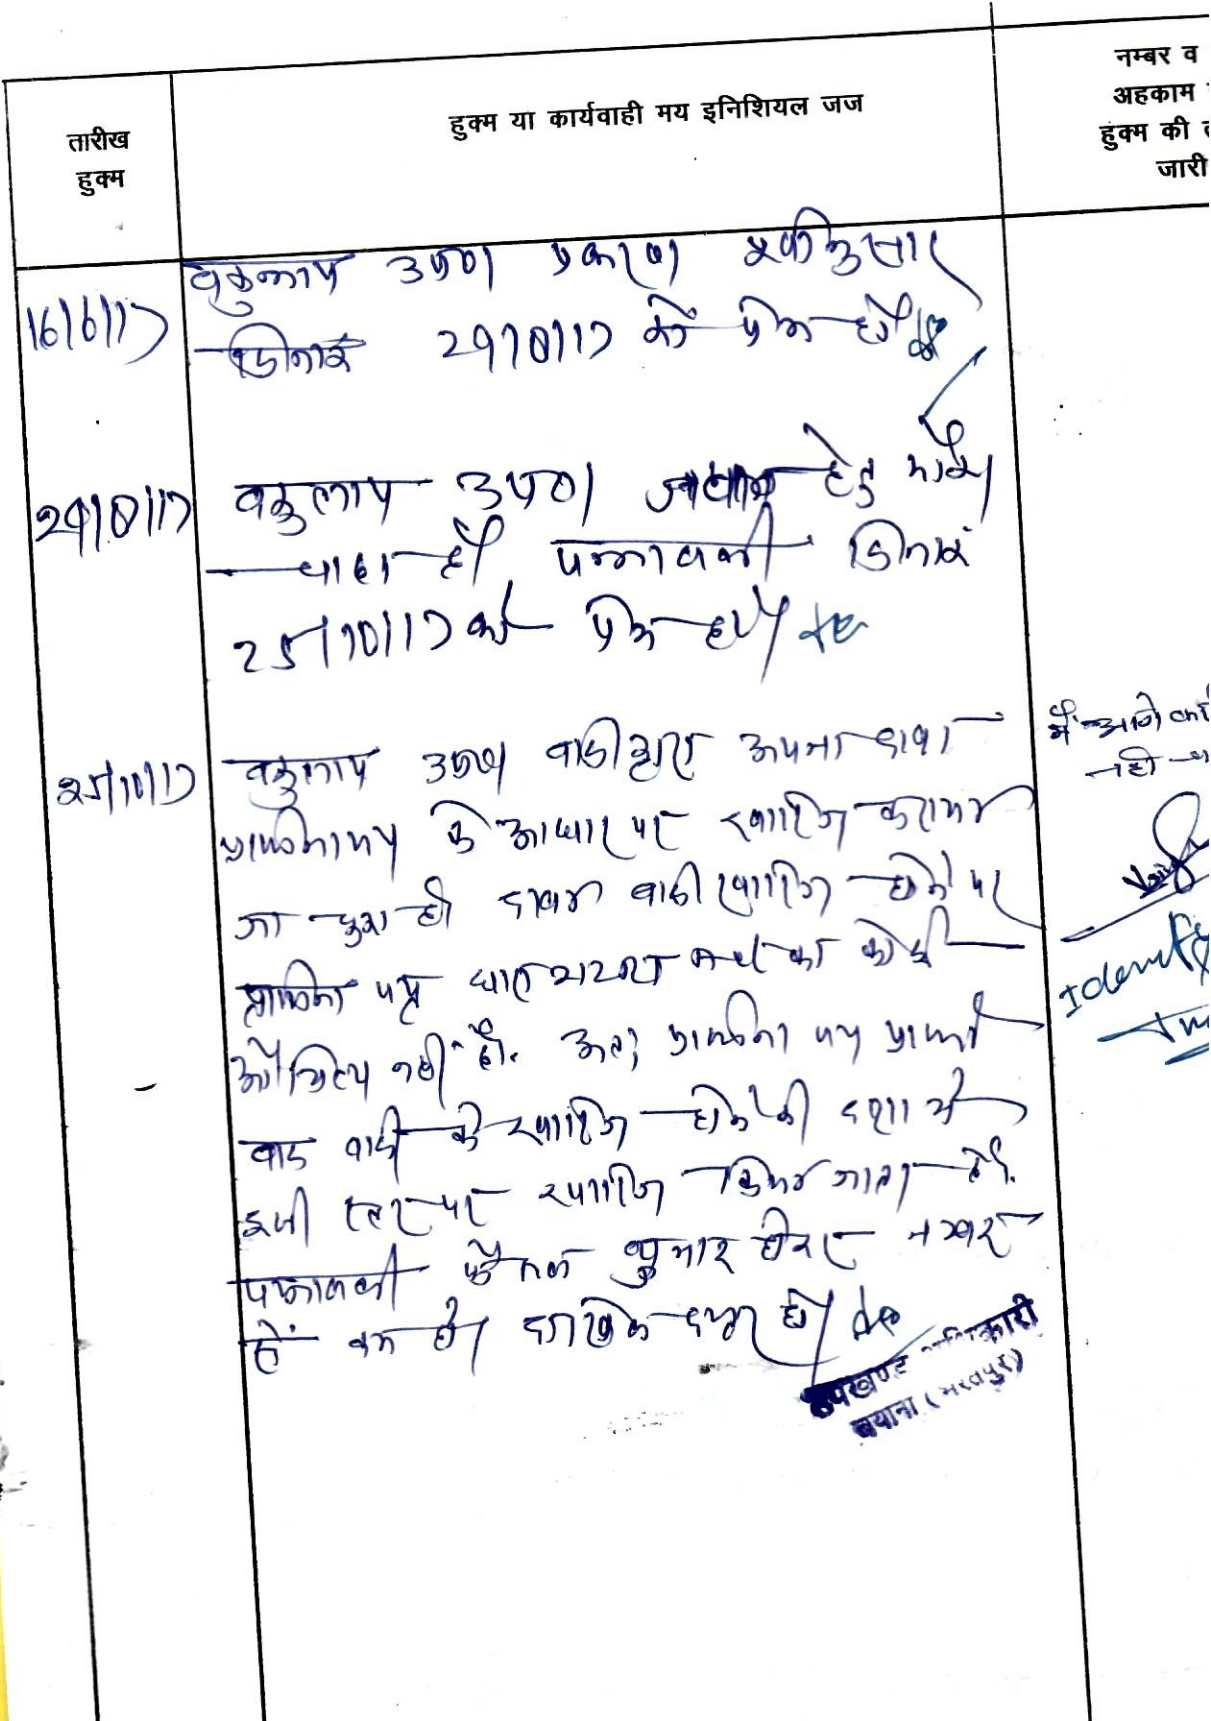 तारीख
हुक्म
हुक्म या कार्यवाही मय इनिशियल जज
नम्बर व
अहकाम
हुक्म की
जारी
16/6/17
वकुलाय उप0।
दिनांक 29/8/17 को पेश हो।
29/8/17
वकुलाय उप0। जवाब हेतु मौका
चाहा है। पत्रावली दिनांक
25/10/17 को पेश हो।
25/10/17
वकुलाय उप0। वादी द्वारा अपना दावा
प्रार्थना पत्र के आधार पर खारिज कराया
जा चुका है। वादी खारिज होने पर
प्रार्थना पत्र का कोई
औचित्य नहीं है. अतः प्रार्थना पत्र प्रार्थी
वाद वादी के खारिज होने की दशा में
इसी स्तर पर खारिज किया जाता है.
पत्रावली फैसल शुमार होकर नम्बर
से कम हो। दाखिल दफ्तर हो।
में आगे
नही
Identify
उपखण्ड अधिकारी
बयाना (भरतपुर)